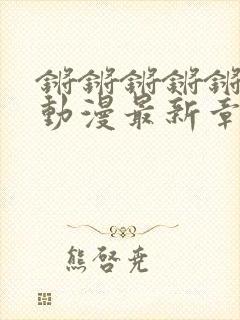 锵锵锵锵锵
動漫最新章
熊啓堯